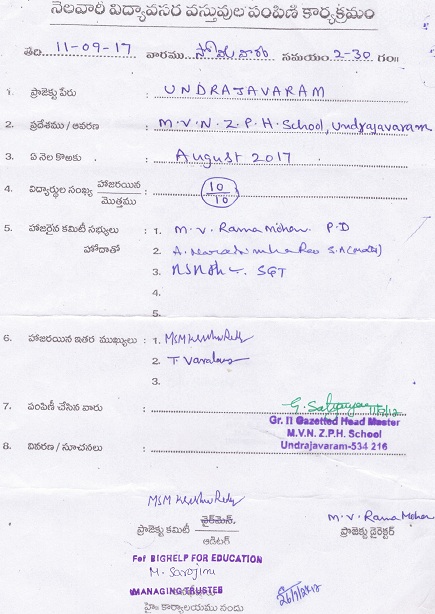 నెలవారీ విద్యావసర వస్తువుల పంపిణి కార్యక్రమం
తేది 11-09-17 వారము సోమవారం సమయం 2-30 గం॥
1. ప్రాజెక్టు పేరు : UNDRAJAVARAM
2. ప్రదేశము / ఆవరణ : M.V.N.Z.P.H.School, Undrajavaram
3. ఏ నెల కొఱకు : August 2017
4. విద్యార్థుల సంఖ్య హాజరయిన / మొత్తము : 10/10
5. హాజరైన కమిటీ సభ్యులు : 1. M.V. Rama Mohan P.D
హోదాతో 2. A. Narasimha Rao S.A(Maths)
3. SGT
4.
5.
6. హాజరయిన ఇతర ముఖ్యులు : 1. MSM Krishna Reddy
2.
3.
7. పంపిణీ చేసిన వారు :
Gr. II Gazetted Head Master
M.V.N. Z.P.H. School
8. వివరణ / సూచనలు :
Undrajavaram-534 216
MSM Krishna Reddy
M.V. Rama Mohan
ప్రాజెక్టు కమిటీ చైర్‌మెన్,
ప్రాజెక్టు డైరెక్టర్
ఆడిటర్
For BIGHELP FOR EDUCATION
M. Sarojini
MANAGING TRUSTEE
హెం కార్యాలయము నందు